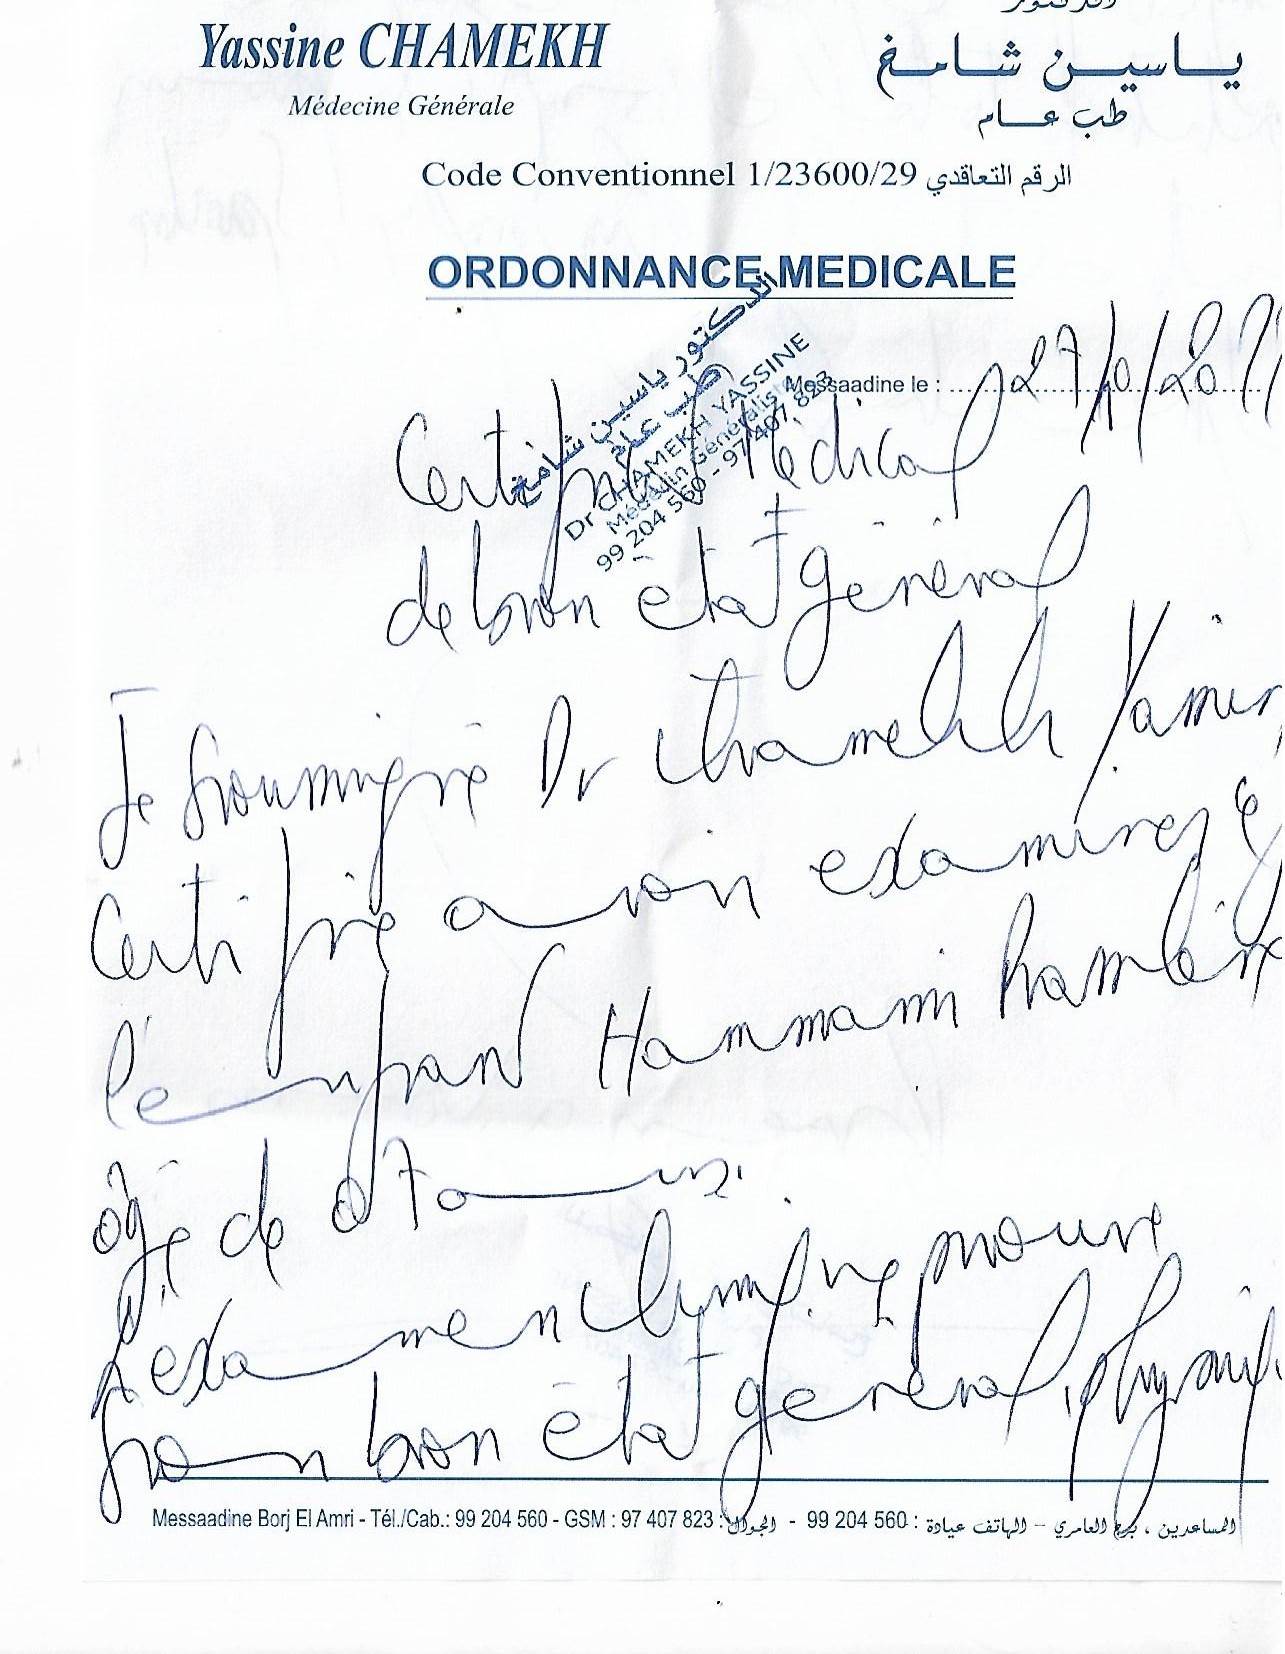 Yassine CHAMEKH
Médecine Générale
الدكتور
ياسين شامخ
طب عام
Code Conventionnel 1/23600/29 الرقم التعاقدي
ORDONNANCE MEDICALE
Messaadine le : 27/10/201
الدكتور ياسين شامخ
طب عام
Dr CHAMEKH YASSINE
Médecin Généraliste
99 204 560 - 97 407 823
Certificat Médical
de bon état général
Je soussigné Dr Chamekh Yassin
Certifie avoir examiner ce
l'enfant Hammami
âgé de 07 ans.
L'examen clinique trouve
son bon état général, physiq
Messaadine Borj El Amri - Tél./Cab.: 99 204 560 - GSM : 97 407 823 : الجوال - 99 204 560 : المساعدين ، برج العامري – الهاتف عيادة